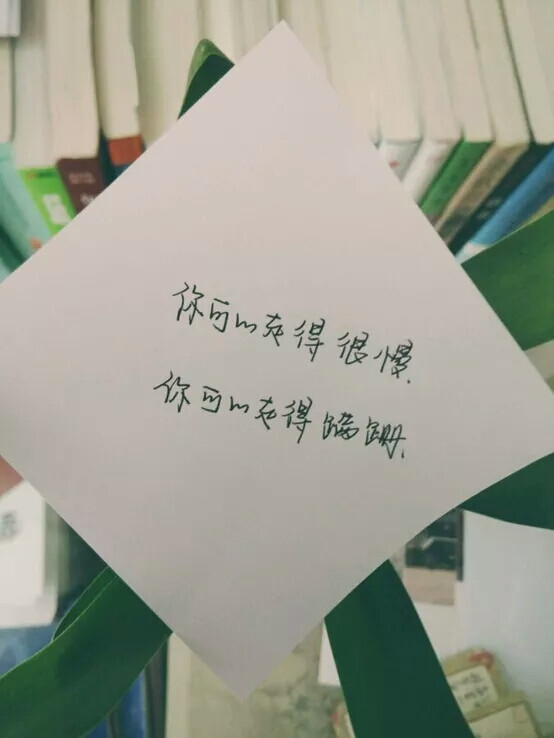 你可以走得很慢
你可以走得蹒跚